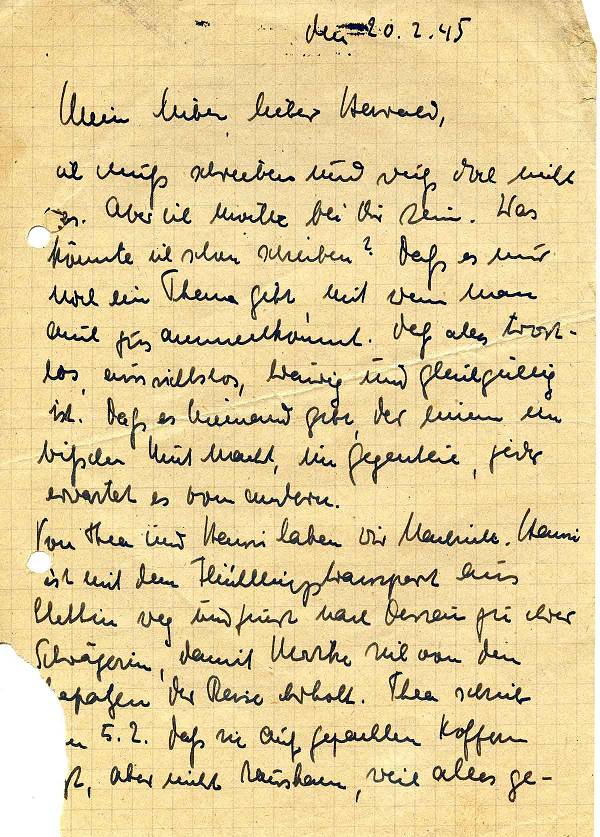 den 20.2.45
Mein lieber, lieber
ich muß schreiben und weiß doch nicht
es. Aber ich möchte bei Dir sein. Was
könnte ich schon schreiben? Daß es nur
noch ein Thema gibt mit wem man
auch zusammenkommt. Daß alles trost-
los, aussichtslos, traurig und gleichgültig
ist. Daß es niemand gibt, der einem ein
bißchen Mut macht, im Gegenteil, jeder
erwartet es vom andern.
Von Thea und Hanni haben wir Nachricht. Hanni
ist mit dem Flüchtlingstransport aus
Stettin weg und zuerst nach Dessau zu ihrer
Schwägerin, damit sich von den
der Reise erholt. Thea schrieb
5.2. daß sie auf gepackten Koffern
, aber nicht rauskam, weil alles ge-